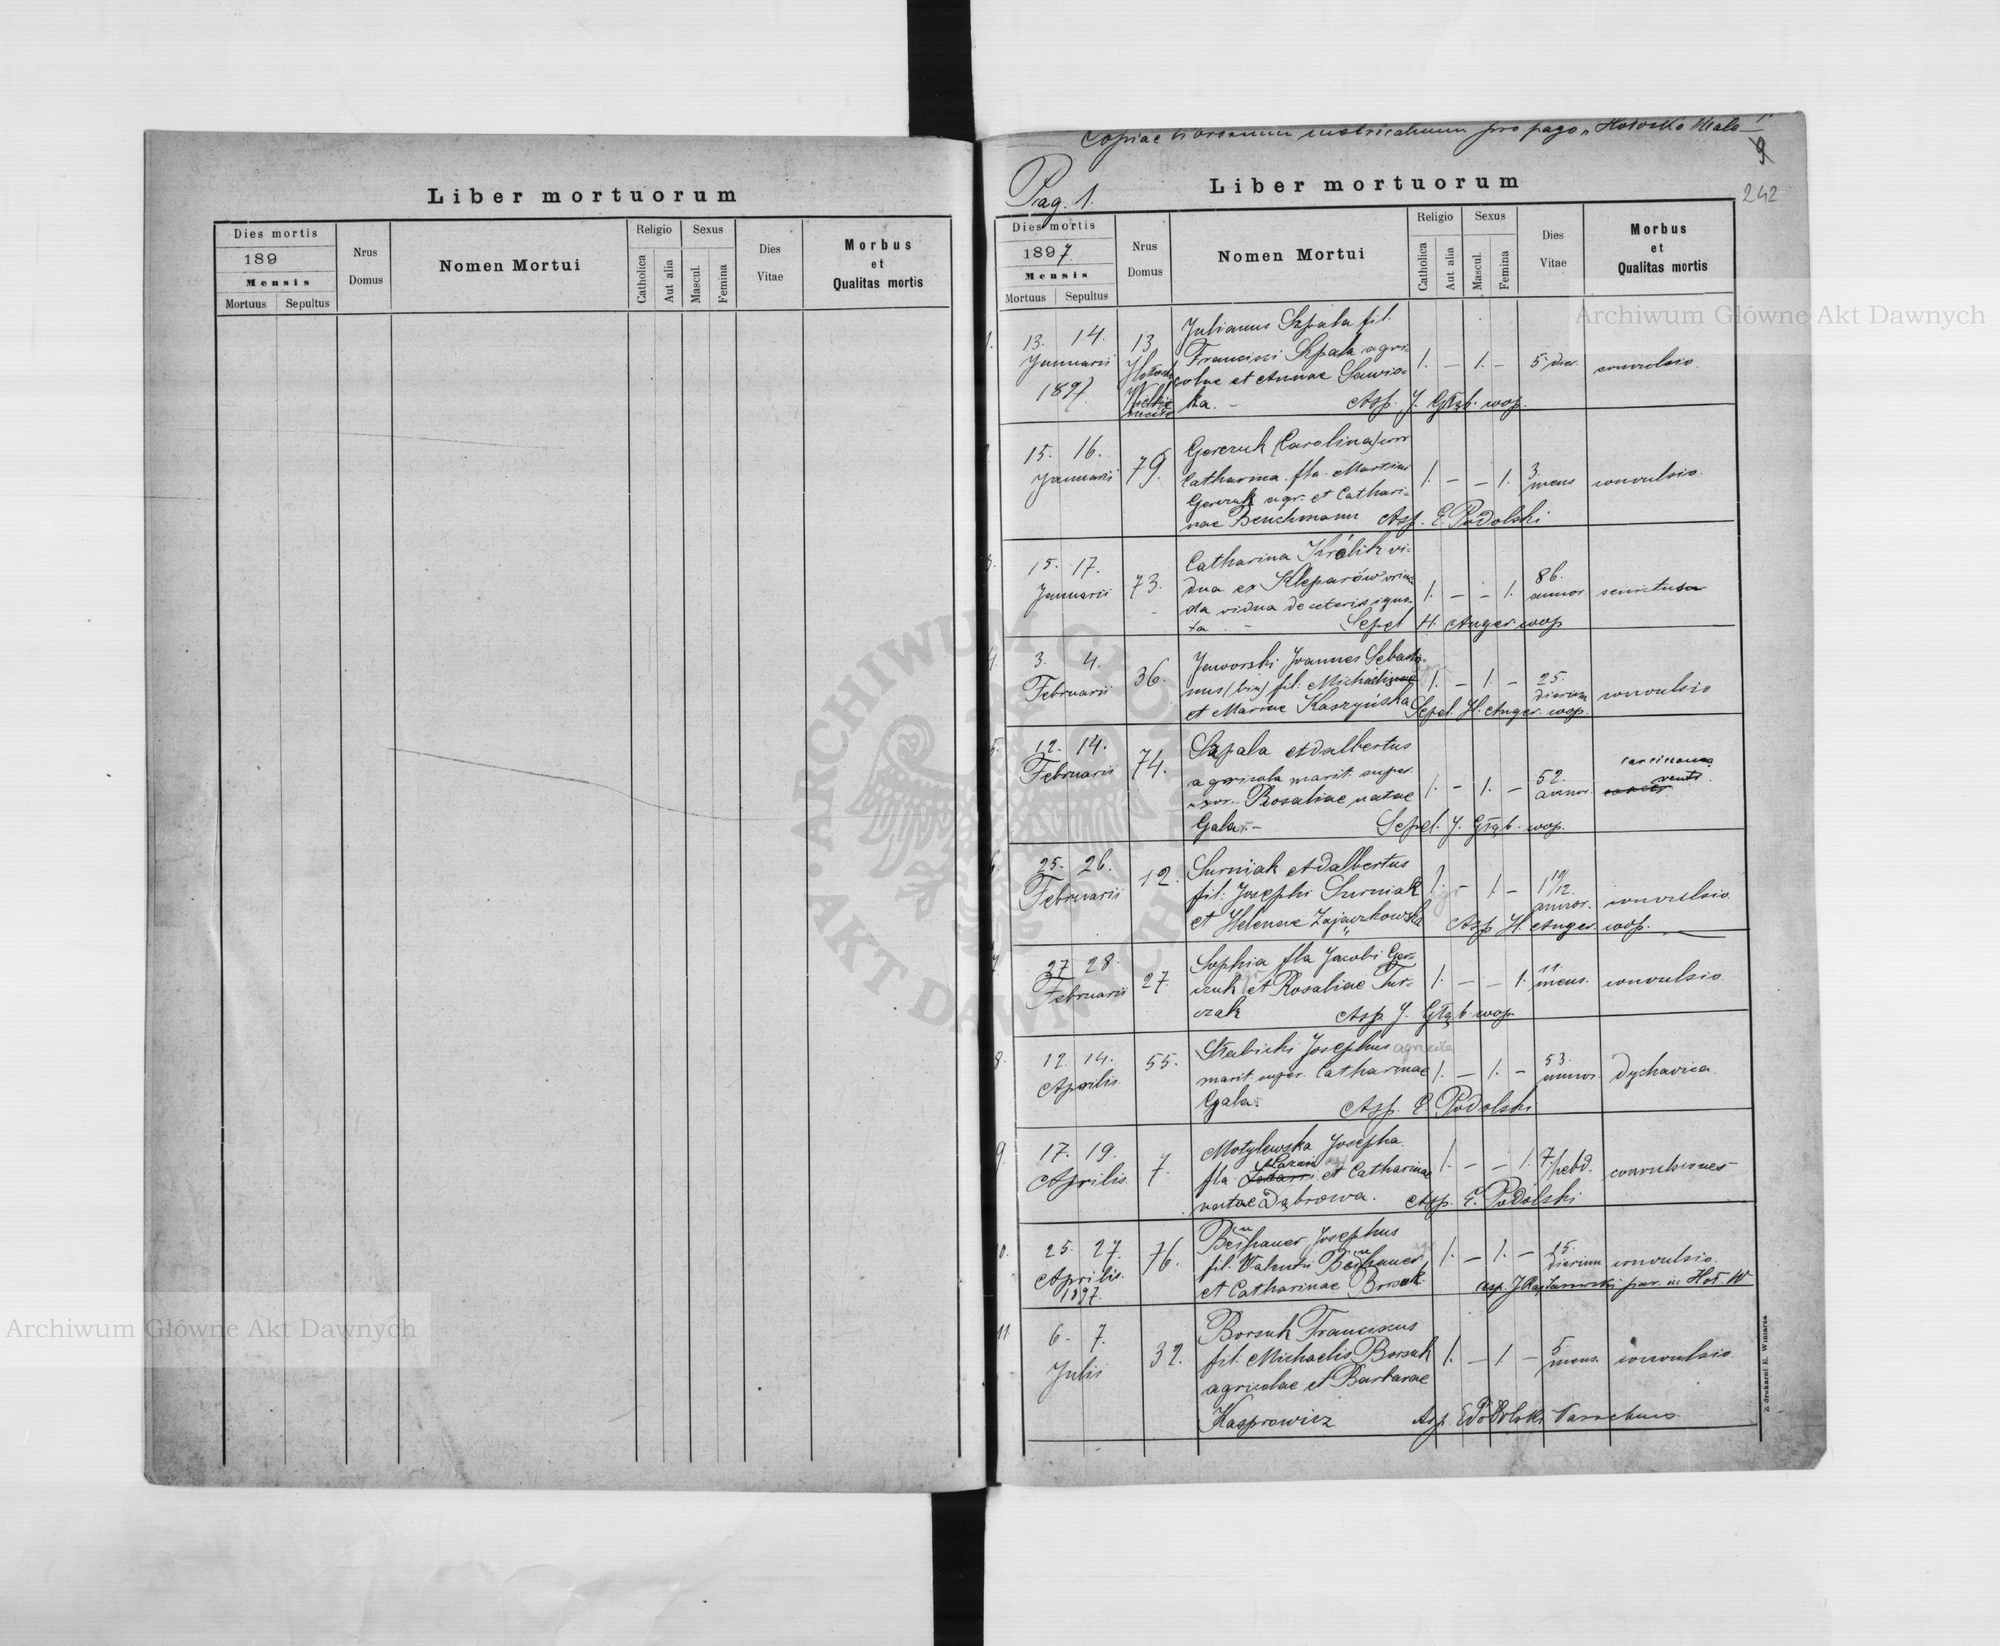 Liber mortuorum
Dies mortis
189
Mensis
Mortuus Sepultus
Nrus Domus
Nomen Mortui
Religio
Catholica
Aut alia
Sexus
Mascul.
Femina
Dies Vitae
Morbus et Qualitas mortis
Copiae librorum metricalium pro pago "Hołosko Małe"
Pag. 1.
9
242
Liber mortuorum
Dies mortis
1897
Mensis
Mortuus Sepultus
Nrus Domus
Nomen Mortui
Religio
Catholica
Aut alia
Sexus
Mascul.
Femina
Dies Vitae
Morbus et Qualitas mortis
1. 13. 14. 13 Julianus Szpala fil.
Januarii Francisci Szpala agri-
colae et Annae 1. — 1. — 5 dier. convulsio.
1897 ka. — Asp. J. Głąb. wop.
15. 16. 79. Gorczuk (Carolina)
Januarii Catharina fla. Martini 1. — — 1. 3 mens convulsio.
Gorczuk agr. et Cathari-
nae Benchmann Asp. E. Podolski
3. 15. 17. 73. Catharina Królik vi-
Januarii dua ex Kleparów 1. — — 1. 86. annor
da vidua de ceteris igno-
ta — Sepel H. Anger wop
4. 3. 4. 36. Jaworski Joannes Sebasti-
Februarii nus (bin) fil: Michaelis 1. — 1. — 25. dierum convulsio
et Mariae Kaszyńska Sepel. H. Anger. wop.
5. 12. 14. 74. Szpala Adalbertus
Februarii agricola marit. super. carcinoma
uxor. Rosaliae natae 1. — 1. — 52. annor. ventr.
Gala. — Sepel. J. Głąb. wop.
6. 25. 26. 12. Surniak Adalbertus
Februarii fil: Josephi Surniak 1. — 1. — 1 10/12. annor. convulsio
et Helenae Zajączkowska Asp H. Anger. wop.
7. 27 28. 27. Sophia fla Jacobi Gor-
Februarii czuk et Rosaliae Tur- 1. — — 1. 11. mens. convulsio
czak Asp. J. Głąb. wop.
8. 12. 14. 55. Słabicki Josephus agricola
Aprilis marit. super. Catharinae 1. — 1. — 53. annor. Dychavica.
Gala. Asp. E. Podolski
9. 17. 19. 7. Motylewska Josepha
Aprilis fla. Lazari et Catharinae 1. — — 1. 7. hebd. convulsiones
natae Dąbrowa. Asp. E. Podolski
10. 25. 27. 76. Josephus
Aprilis. fil. Valentii 1. — 1. — 15. dierum convulsio.
1897. et Catharinae Borsuk.
11. 6. 7. 32. Borsuk Franciscus
Julii fil: Michaelis Borsuk 1. — 1 — 5 mens. convulsio.
agricolae et Barbarae
Kasprowicz Asp. E Podolski Parochus
Z drukarni E. Winiarza
Archiwum Główne Akt Dawnych
Archiwum Główne Akt Dawnych
ARCHIWUM GŁÓWNE AKT DAWNYCH